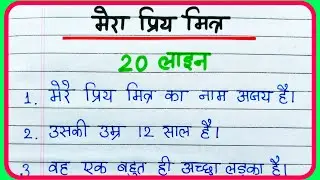 मेरा प्रिय मित्र
20 लाइन
1. मेरे प्रिय मित्र का नाम अजय है।
2. उसकी उम्र 12 साल है।
3 वह एक बहुत ही अच्छा लड़का है।